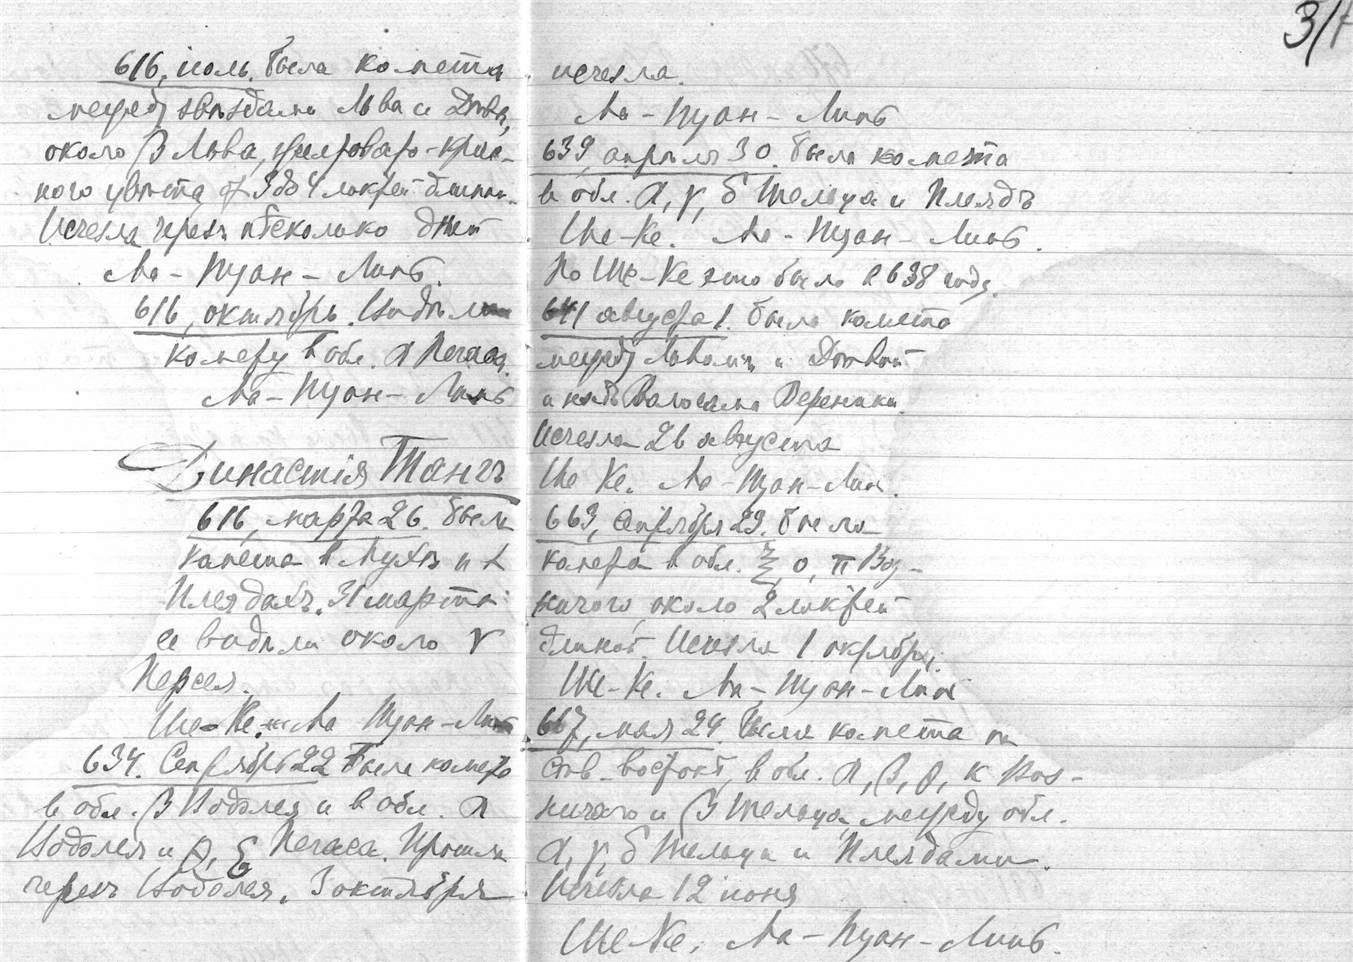 3/7
616, июль. Была комета
между звѣздами Льва и Дѣвы,
около β Льва, пурпурово-крас-
ного цвѣта от 3 до 4 локтей длины.
Исчезла черезъ нѣсколько дней
Ма-Туан-Линь.
616, октябрь. Видѣли
комету в обл. α Пегаса.
Ма-Туан-Линь
Династія Тангъ
616, марта 26. была
комета в Мухѣ и к
Плеядахъ. 31 марта
ее видѣли около γ
Персея.
Ше-Ке. Ма Туан-Линь
634. Сентября 22 была комета
в обл. β Водолея и в обл. α
Водолея и θ, ε Пегаса. Прошла
черезъ Водолея. 3 октября
исчезла.
Ма-Туан-Линь
639, апрѣля 30. была комета
в обл. α, γ, δ Тельца и Плеядъ
Ше-Ке. Ма-Туан-Линь.
По Ше-Ке это было в 638 году.
641 августа 1. была комета
между Львомъ и Дѣвой
и надъ Волосами Вереники.
Исчезла 26 августа
Ше Ке. Ма-Туан-Лин.
663, сентября 29. была
комета в обл. ξ, ο, π Воз-
ничого около 2 локтей
длиной. Исчезла 1 октября.
Ше-Ке. Ма-Туан-Линь
667, мая 24. была комета на
сѣв-востокѣ, в обл. α, β, θ, κ Воз-
ничаго и β Тельца, между обл.
α, γ, δ Тельца и Плеядами.
Исчезла 12 июня
Ше-Ке. Ма-Туан-Линь.